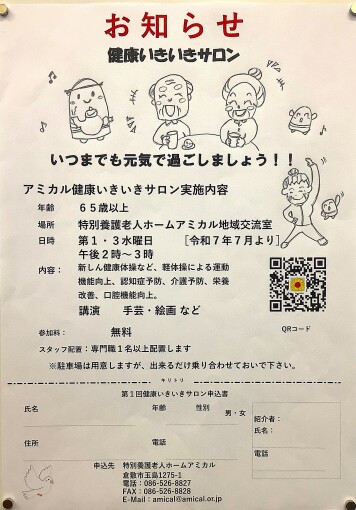 お知らせ
健康いきいきサロン
いつまでも元気で過ごしましょう！！
アミカル健康いきいきサロン実施内容
年齢 ６５歳以上
場所 特別養護老人ホームアミカル地域交流室
日時 第１・３水曜日 ［令和７年７月より］
午後２時～３時
内容： 新しん健康体操など、軽体操による運動
機能向上、認知症予防、介護予防、栄養
改善、口腔機能向上。
講演 手芸・絵画 など
QRコード
参加料： 無料
スタッフ配置：専門職１名以上配置します
※駐車場は用意しますが、出来るだけ乗り合わせておいで下さい。
キリトリ
第１回健康いきいきサロン申込書
氏名 年齢 性別
男・女
紹介者：
氏名：
住所 電話
電話
申込先 特別養護老人ホームアミカル
倉敷市玉島1275-1
電話：086-526-8827
FAX：086-526-8828
E-Mail：amical@amical.or.jp